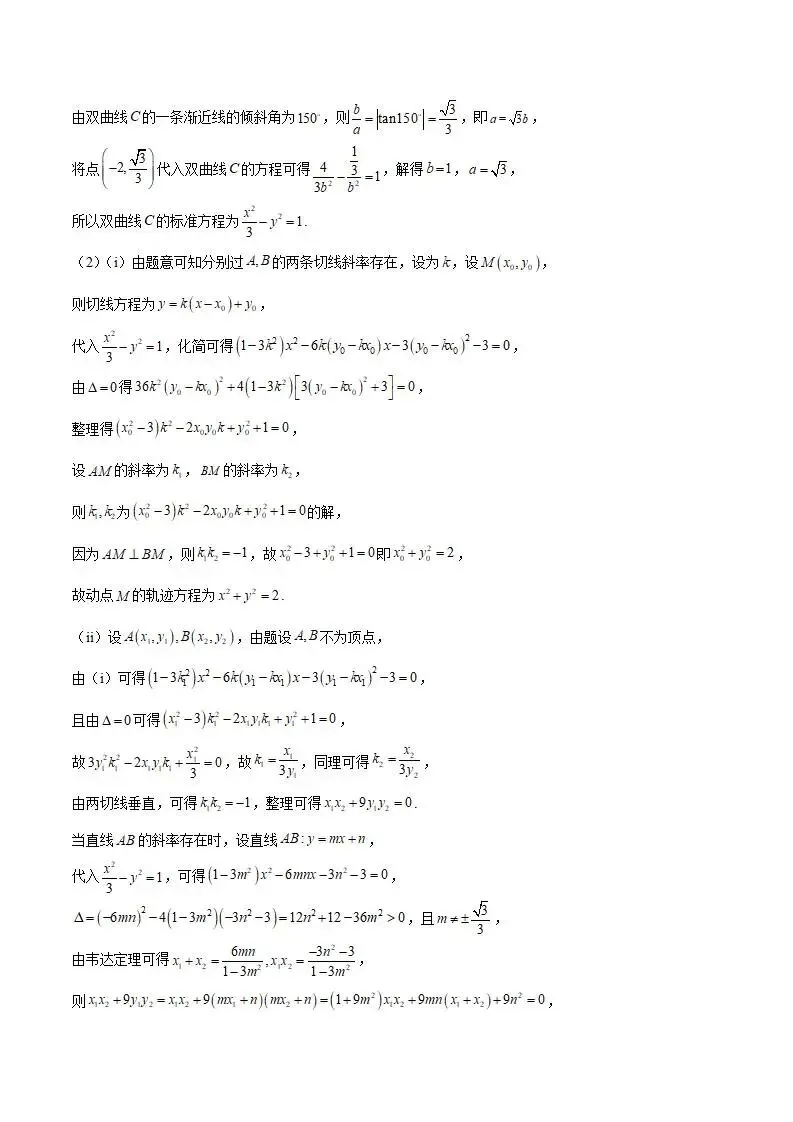 由双曲线C的一条渐近线的倾斜角为150°，则b/a=|tan150°|=√3/3，即a=√3b，
将点(-2,√3/3)代入双曲线C的方程可得4/(3b²)-(1/3)/b²=1，解得b=1，a=√3，
所以双曲线C的标准方程为x²/3-y²=1.
（2）（i）由题意可知分别过A,B的两条切线斜率存在，设为k，设M(x₀,y₀)，
则切线方程为y=k(x-x₀)+y₀，
代入x²/3-y²=1，化简可得(1-3k²)x²-6k(y₀-kx₀)x-3(y₀-kx₀)²-3=0，
由Δ=0得36k²(y₀-kx₀)²+4(1-3k²)[3(y₀-kx₀)²+3]=0，
整理得(x₀²-3)k²-2x₀y₀k+y₀²+1=0，
设AM的斜率为k₁，BM的斜率为k₂，
则k₁,k₂为(x₀²-3)k²-2x₀y₀k+y₀²+1=0的解，
因为AM⊥BM，则k₁k₂=-1，故x₀²-3+y₀²+1=0即x₀²+y₀²=2，
故动点M的轨迹方程为x²+y²=2.
（ii）设A(x₁,y₁),B(x₂,y₂)，由题设A,B不为顶点，
由（i）可得(1-3k₁²)x²-6k(y₁-kx₁)x-3(y₁-kx₁)²-3=0，
且由Δ=0可得(x₁²-3)k₁²-2x₁y₁k₁+y₁²+1=0，
故3y₁²k₁²-2x₁y₁k₁+x₁²/3=0，故k₁=x₁/(3y₁)，同理可得k₂=x₂/(3y₂)，
由两切线垂直，可得k₁k₂=-1，整理可得x₁x₂+9y₁y₂=0.
当直线AB的斜率存在时，设直线AB:y=mx+n，
代入x²/3-y²=1，可得(1-3m²)x²-6mnx-3n²-3=0，
Δ=(-6mn)²-4(1-3m²)(-3n²-3)=12n²+12-36m²>0，且m≠±√3/3，
由韦达定理可得x₁+x₂=6mn/(1-3m²),x₁x₂=(-3n²-3)/(1-3m²)，
则x₁x₂+9y₁y₂=x₁x₂+9(mx₁+n)(mx₂+n)=(1+9m²)x₁x₂+9mn(x₁+x₂)+9n²=0，